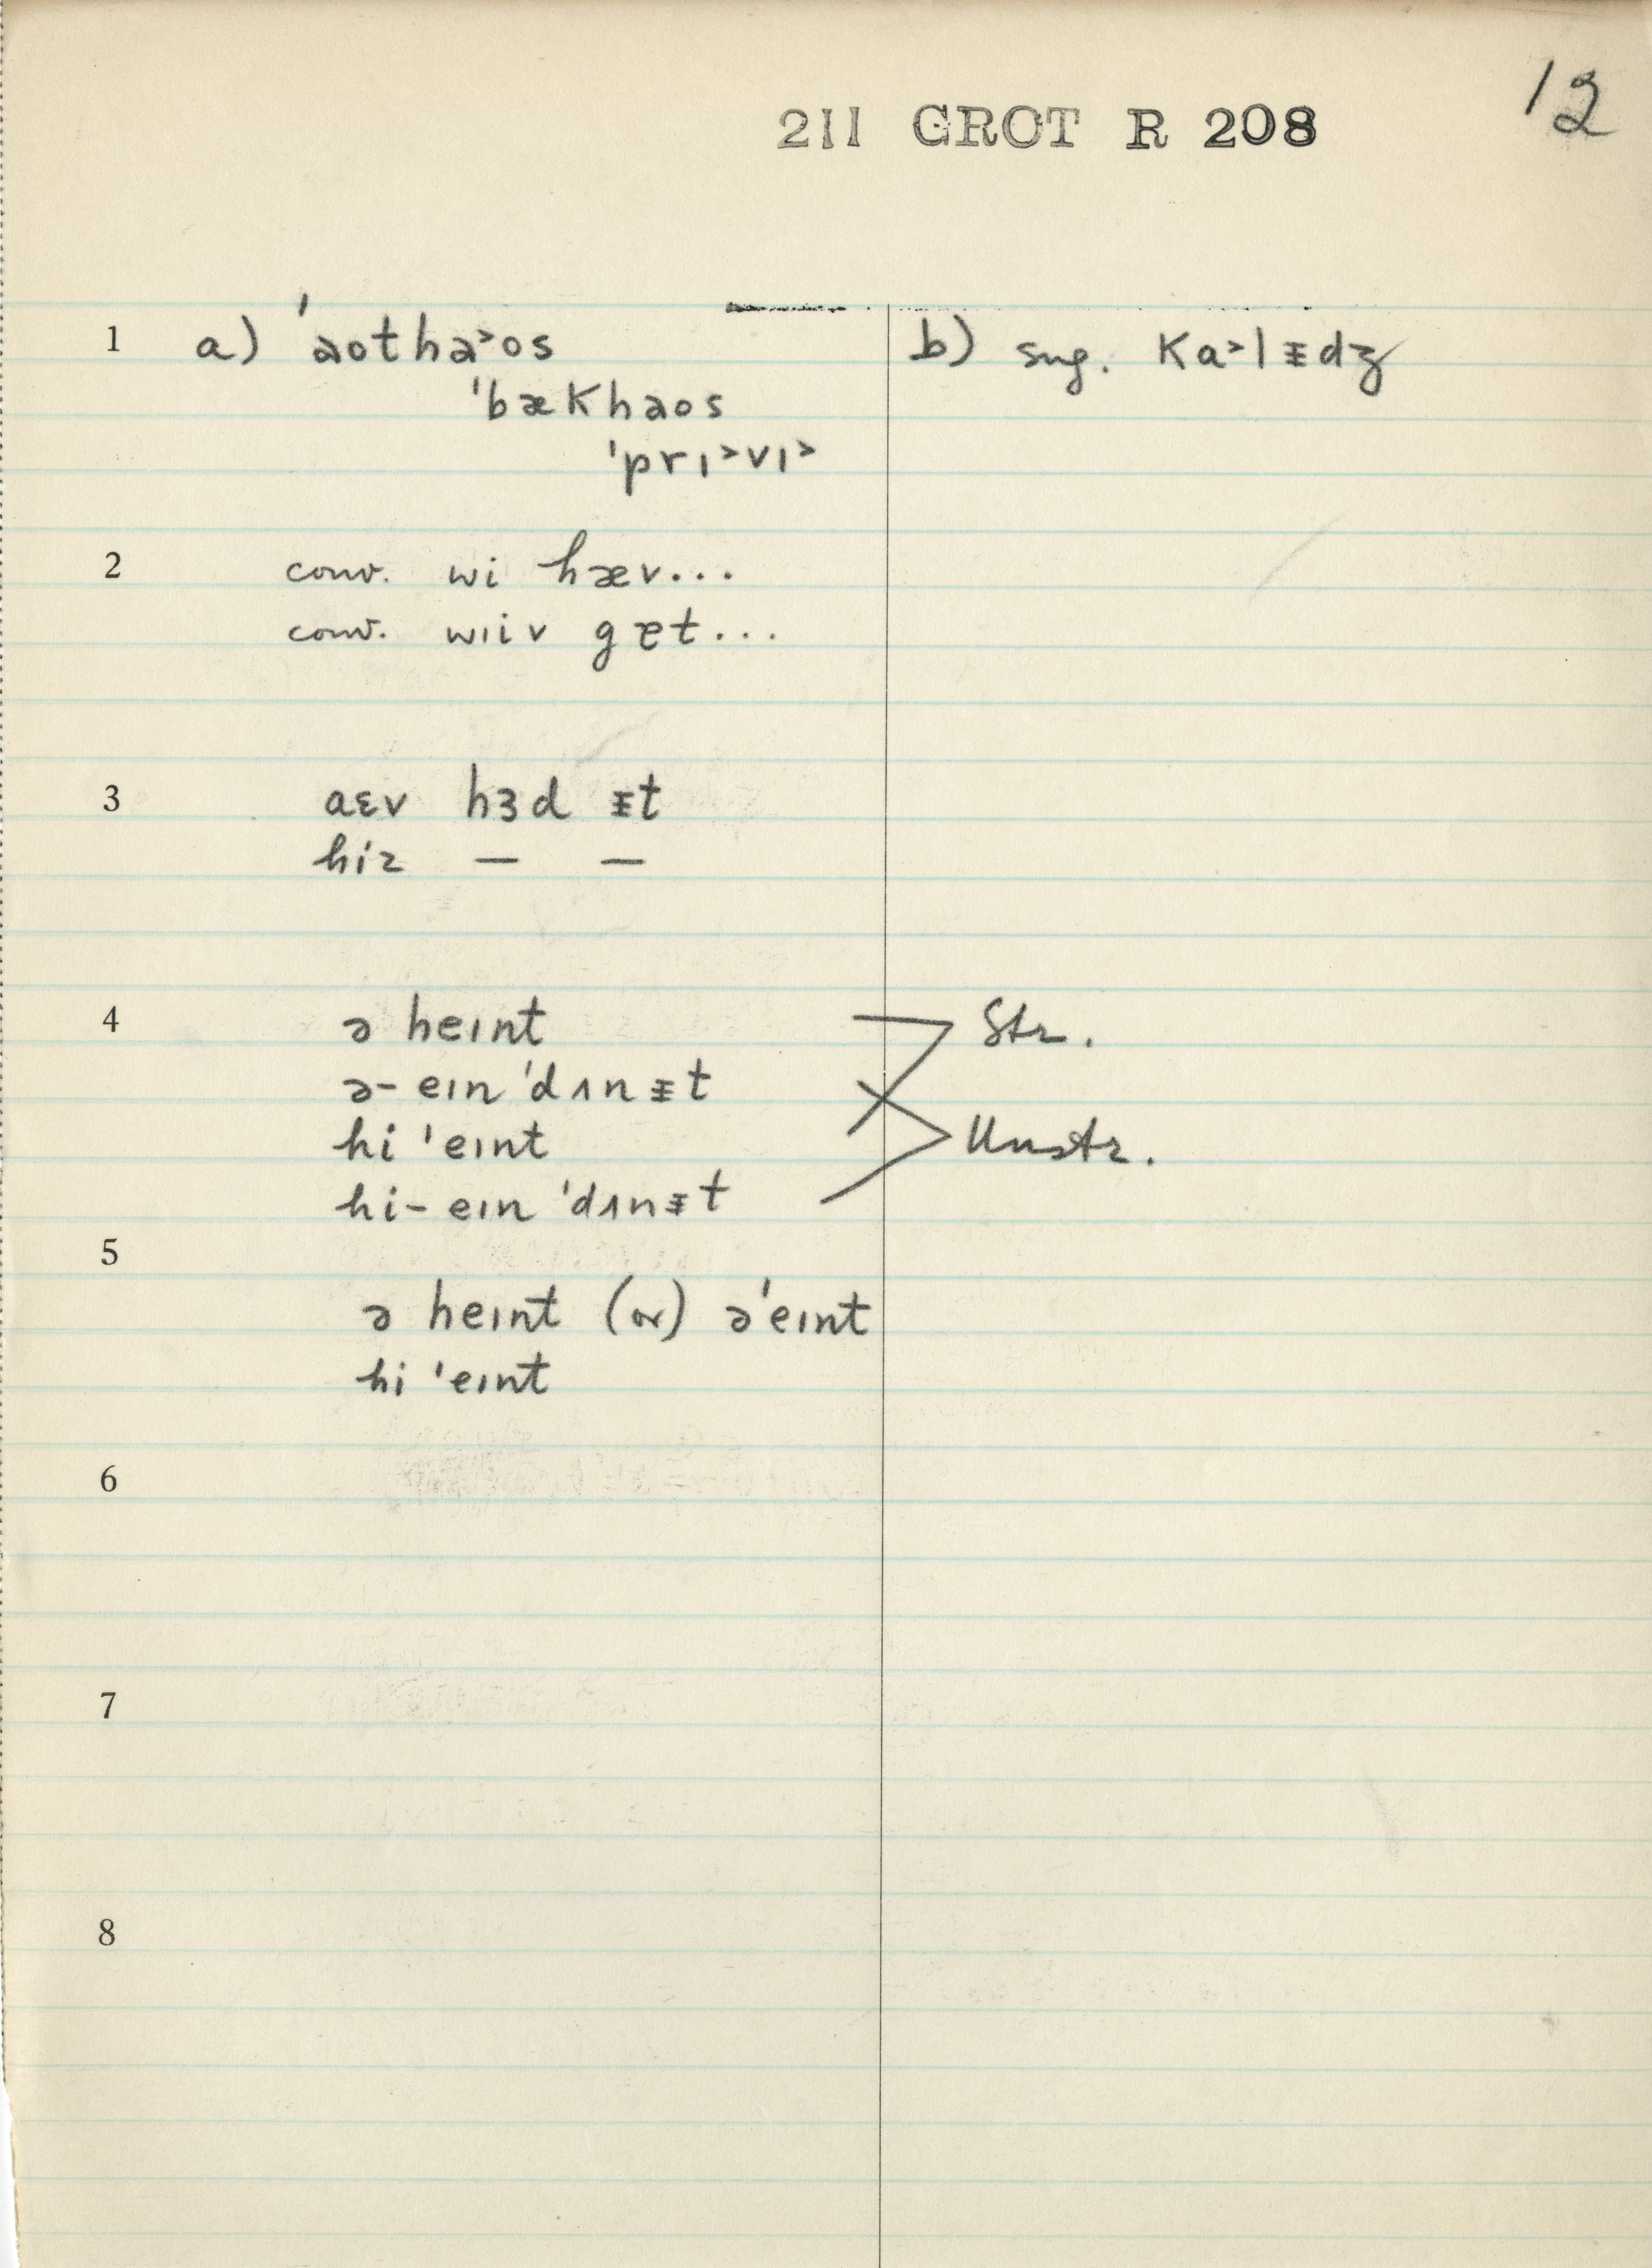 12
211 GROT R 208
1 a) 'aotha˃os b) sug. ka˃lᵻdʒ
'bækhaos
'prɪ˃vɪ˃
2 conv. wi hæv...
conv. wɪiv get...
3 aɛv hɜd ᵻt
hiz — —
4 ə heɪnt Str.
ə- eɪn 'dʌnᵻt
hi 'eɪnt Unstr.
hi- eɪn 'dʌnᵻt
5
ə heɪnt (or) ə'eɪnt
hi 'eɪnt
6
7
8